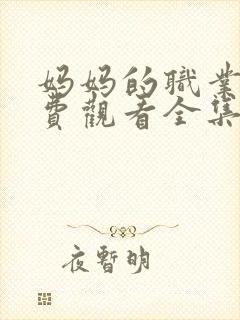 妈妈的職業
費觀看全集
夜暫明